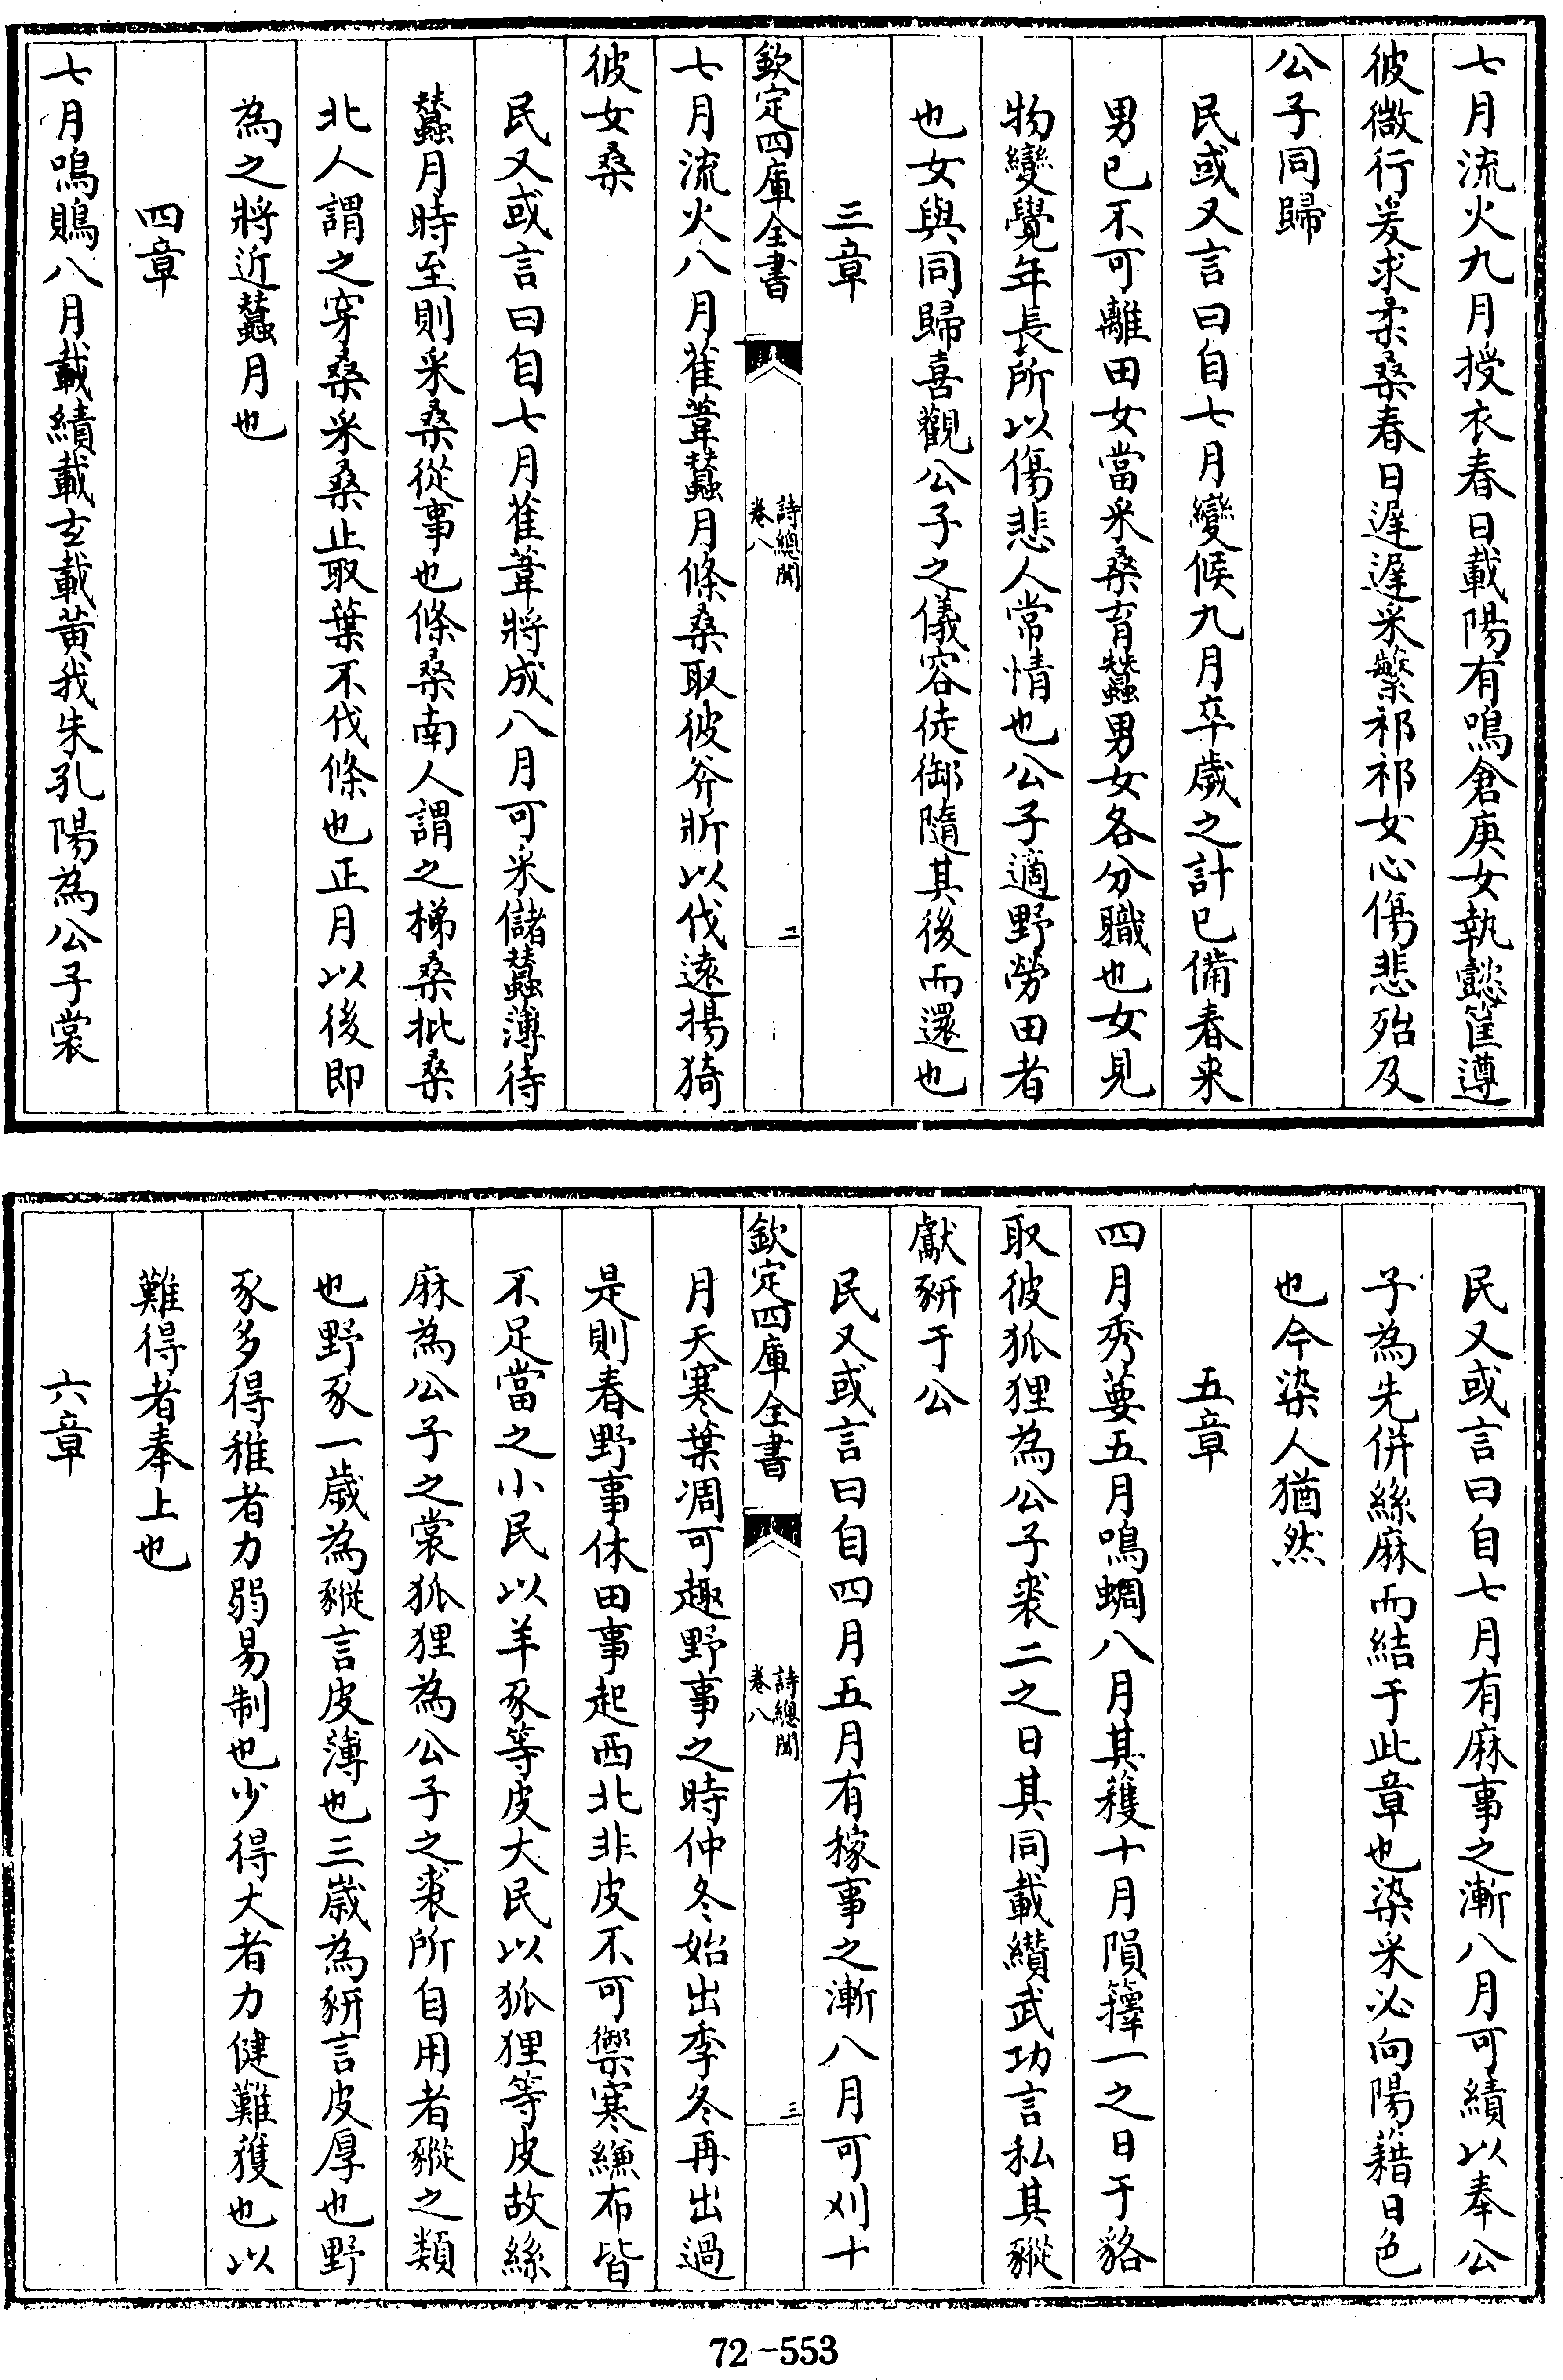 七月流火九月授衣春日載陽有鳴倉庚女執懿筐遵
彼微行爰求柔桑春日遲遲采蘩祁祁女心傷悲殆及
公子同歸
民或又言曰自七月變候九月卒歲之計已備春来
男已不可離田女當采桑育蠶男女各分職也女見
物變覺年長所以傷悲人常情也公子適野勞田者
也女與同歸喜觀公子之儀容徒御隨其後而還也
三章
欽定四庫全書
詩總聞
卷八
二
七月流火八月萑葦蠶月條桑取彼斧斨以伐遠揚猗
彼女桑
民又或言曰自七月萑葦將成八月可采儲蠶薄待
蠶月時至則采桑從事也條桑南人謂之梯桑批桑
北人謂之穿桑采桑止取葉不伐條也正月以後即
為之將近蠶月也
四章
七月鳴鵙八月載績載玄載黃我朱孔陽為公子裳
民又或言曰自七月有麻事之漸八月可績以奉公
子為先併絲麻而結于此章也染采必向陽藉日色
也今染人猶然
五章
四月秀葽五月鳴蜩八月其穫十月隕蘀一之日于貉
取彼狐狸為公子裘二之日其同載纘武功言私其豵
獻豜于公
民又或言曰自四月五月有稼事之漸八月可刈十
欽定四庫全書
詩總聞
卷八
三
月天寒葉凋可趣野事之時仲冬始出季冬再出過
是則春野事休田事起西北非皮不可禦寒縑布皆
不足當之小民以羊豕等皮大民以狐狸等皮故絲
麻為公子之裳狐狸為公子之裘所自用者豵之類
也野豕一歲為豵言皮薄也三歲為豜言皮厚也野
豕多得稚者力弱易制也少得大者力健難獲也以
難得者奉上也
六章
72-553